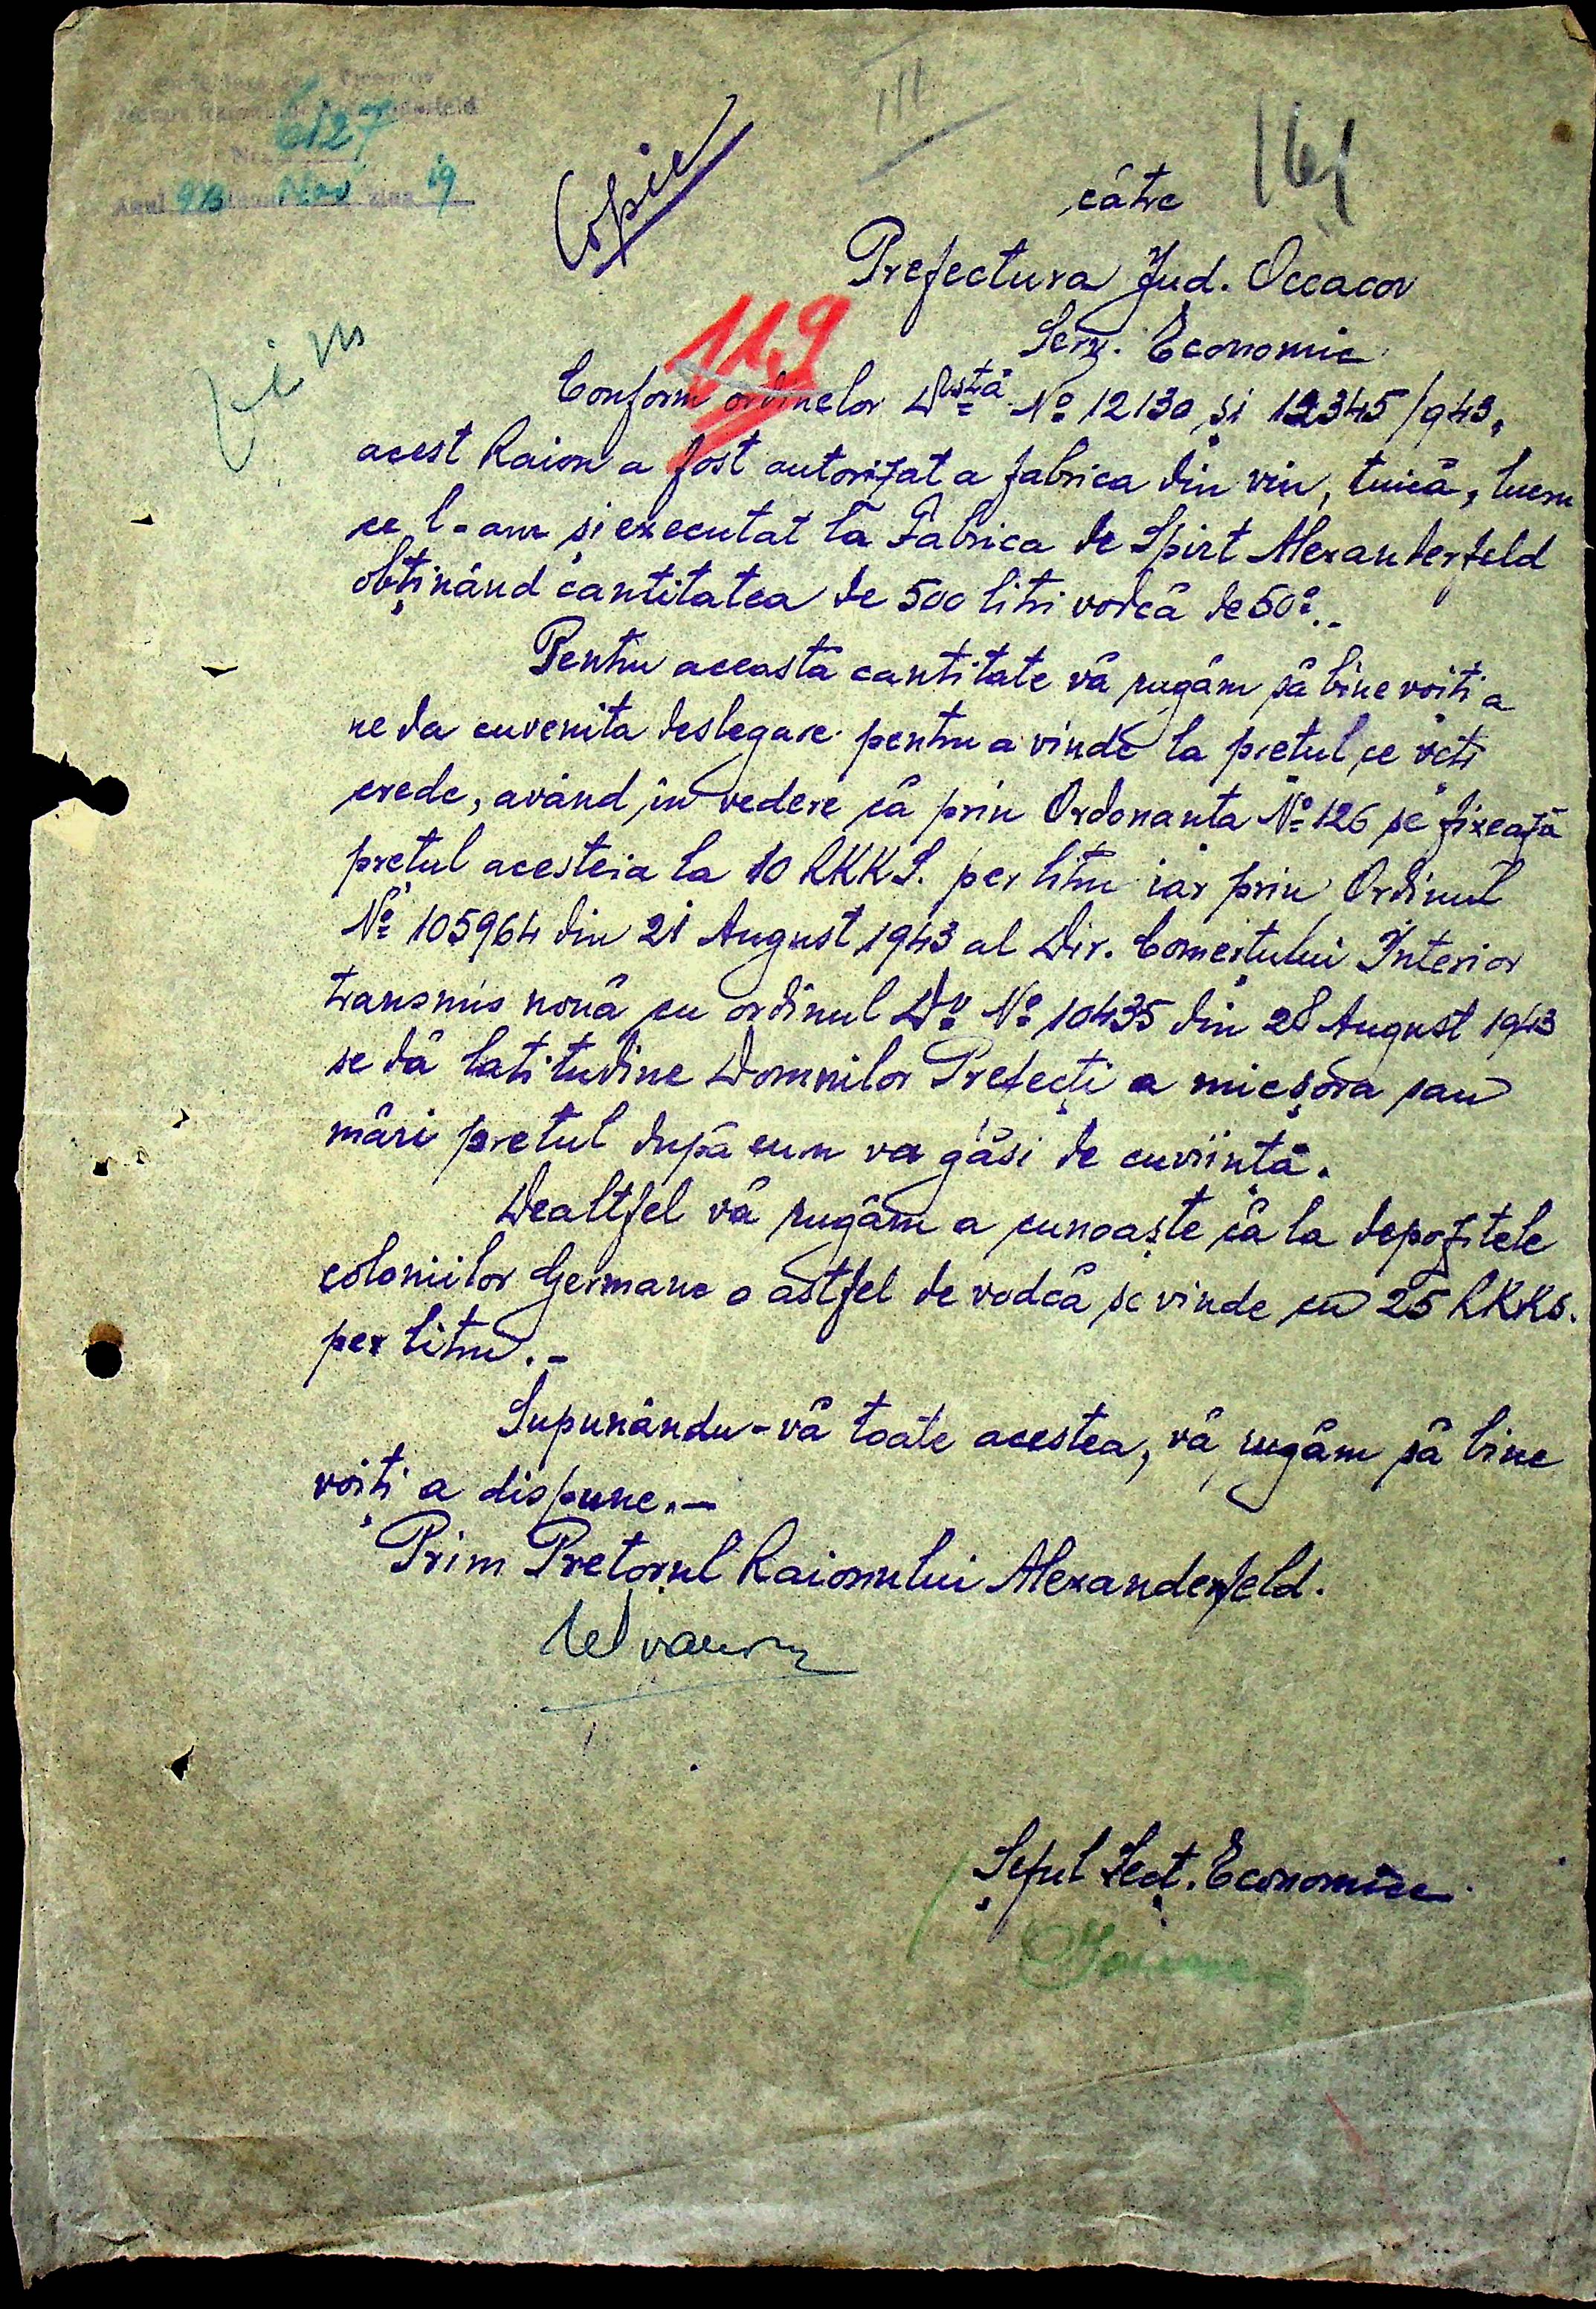 6127
Anul 943 luna Nov ziua 19
Copie
III
161
către
Prefectura Jud. Oceacov
Serv. Economic
119
Conform ordinelor Dvstră № 12130 și 12345/943,
acest Raion a fost autorizat a fabrica din vin, tuică, lucru
ce l-am și executat la Fabrica de Spirt Alexanderfeld
obținând cantitatea de 500 litri vodcă de 50°.-
Pentru aceasta cantitate vă rugăm să bine voiti a
ne da cuvenita deslegare pentru a vinde la pretul ce veti
crede, având în vedere că prin Ordonanta № 126 se fixează
prețul acesteia la 10 RKKS. per litru iar prin Ordinul
№ 105964 din 21 August 1943 al Dir. Comerțului Interior
transmis nouă cu ordinul Dv № 10435 din 28 August 1943
se dă latitudine Domnilor Prefecți a micșora sau
mări pretul după cum va găsi de cuviință.
Dealtfel vă rugăm a cunoaște că la depozitele
coloniilor Germane o astfel de vodcă se vinde cu 25 RKKS.
per litru.-
Supunându-vă toate acestea, vă rugăm să bine
voiți a dispune.-
Prim Pretorul Raionului Alexanderfeld.
Șeful Secț. Economice